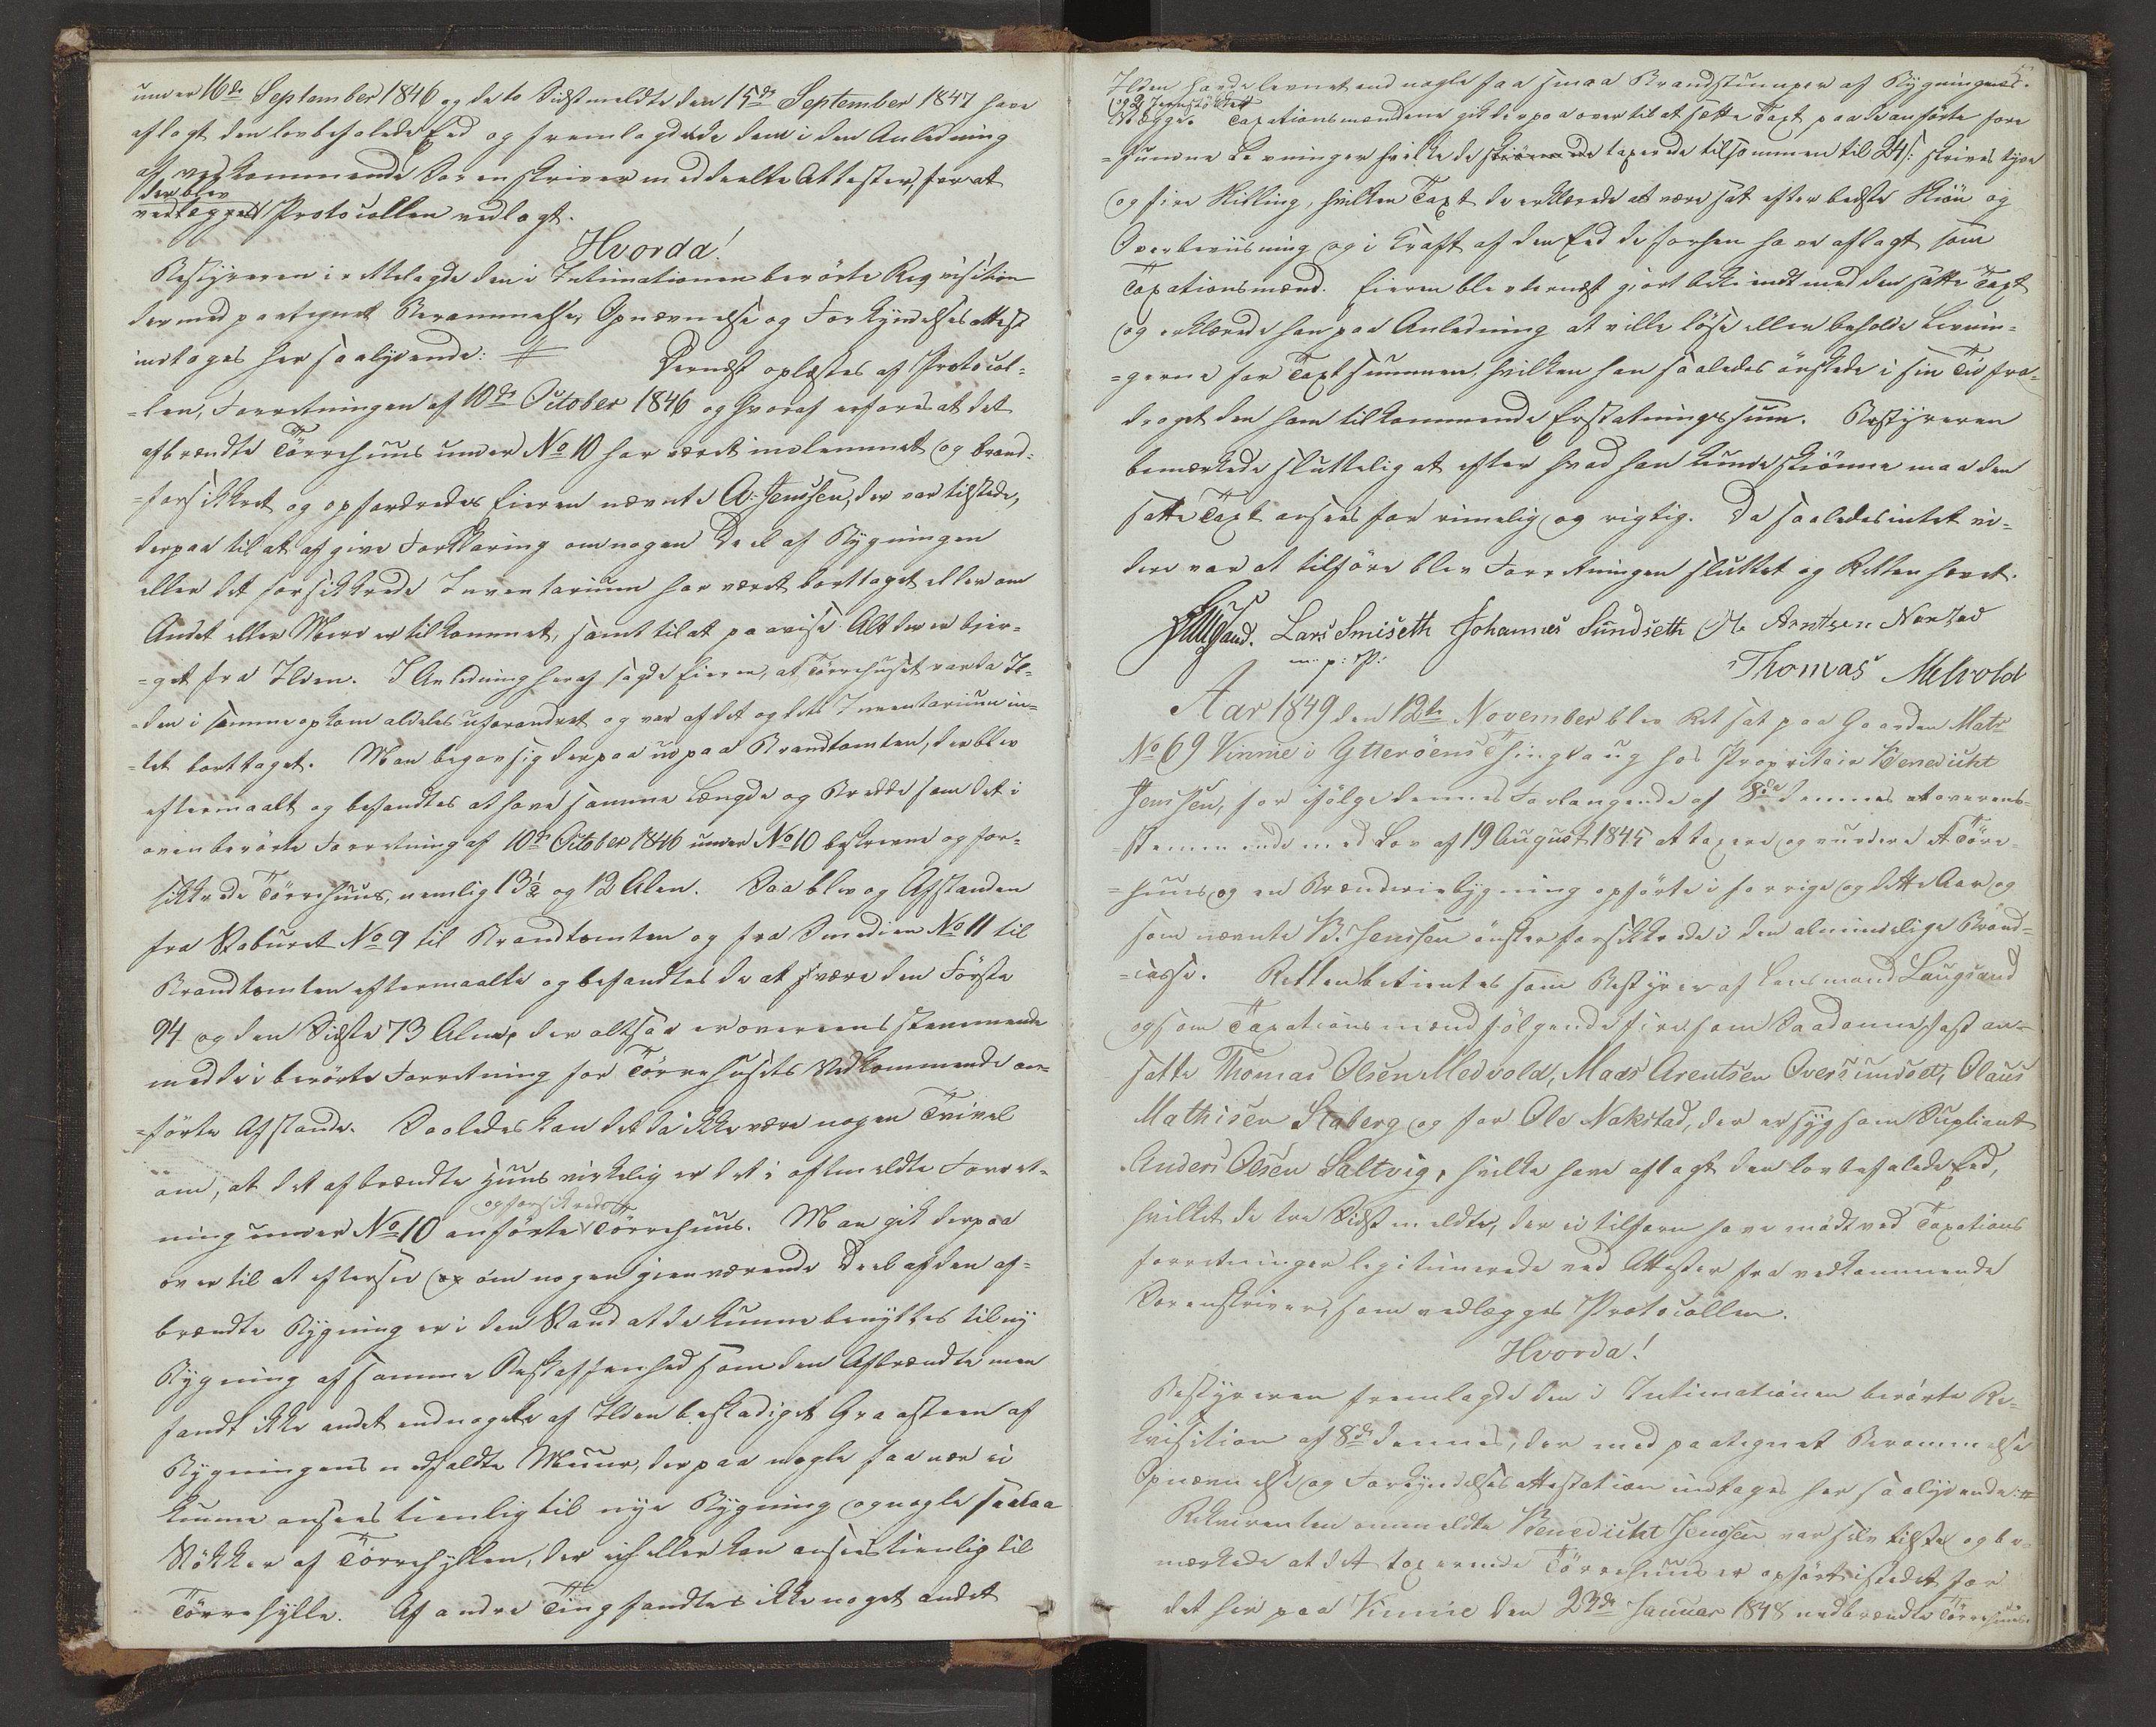 under 16de September 1846 og de to Sidstmeldte den 15de September 1847 have
aflagt den lovbefalede Eed og fremlagde de dem i den Anledning
af vedkommende Sorenskriver meddeelte Attester, for at
der blev
vedlægges Protocollen vedlagt.
Hvorda!
Bestyreren irettelagde den i Intimationen berørte Reqvisition
der med paategnet Berammelse, Opnævnelse og Forkyndelsesattest
indtages her saalydende: # Dernæst oplæstes af Protocol-
-len, Forretningen af 10de October 1846 og hvoraf erfares at det
afbrændte Tørrehuus under No 10 har været indlemmet og brand-
-forsikkret og opfordredes Eieren nævnte A. Jenssen, der var tilstede,
derpaa til at afgive Forklaring om nogen Deel af Bygningen
eller det forsikkrede Inventarium har været borttaget eller om
Andet eller Mere er tilkommet, samt til at paavise Alt der er bjer-
-get fra Ilden. I Anledning heraf sagde Eieren, at Tørrehuset var da Il-
-den i samme opkom aldeles uforandret og var af det og dets Inventarium in-
-tet borttaget. Man begav sig derpaa ud paa Brandtomten, der blev
eftermaalt og befandtes at have samme Længde og Bredde som det i
ovenberørte Forretning af 10de October 1846 under No 10 beskrevne og for-
sikkrede Tørrehuus, nemlig 13½ og 12 Alen. Saa blev og Afstanden
fra Staburet No 9 til Brandtomten og fra Smedien No 11 til
Brandtomten eftermaalte og befandtes de at være den Første
94 og den Sidste 73 Alen, der altsaa er overeensstemmende
med de i berørte Forretning for Tørrehusets Vedkommende an-
-førte Afstande. Saaledes kan det da ikke være nogen Tvivel
om, at det afbrændte Huus virkelig er det i oftmeldte Forret-
og forsikrede
ning under No 10 anførte Tørrehuus. Man gik derpaa
over til at eftersee om nogen gjenværende Deel af den af-
brændte Bygning er i den Stand at de kunne benyttes til ny
Bygning af samme Beskaffenhed som den Afbrændte men
fandt ikke andet end nogle af Ilden beskadiget Graasteen af
Bygningens nedfaldte Muur, derpaa nogle faa var ei
kunne ansees tienlig til nye Bygning og nogle faa
Stökker af Tørrehylken, der ei heller kan ansees tienlig til
Tørrehylle. Af andre Ting fandtes ikke noget andet
5.
Ilden havde levnet end nogle faa smaa Brandstumper af Bygningens
Vægge. Taxationsmændene gik derpaa over til at sætte Taxt paa de anførte fore
-fundne Levninger hvilke de taxerede tilsammen til 24 s: skrives tyve
og fire Skilling, hvilken Taxt de erklærede at være sat efter bedste Skiøn og
Overbeviisning og i Kraft af den Eed de forhen have aflagt som
Taxationsmænd. Eieren blev dernæst gjort bekiendt med den satte Taxt
og erklærede han paa Anledning at ville løse eller beholde Levnin-
-gerne for Taxtsummen, hvilken han saaledes ønskede i sin Tid fra-
draget den ham tilkommende Erstatningssum. Bestyreren
bemærkede sluttelig at efter hvad han kunde skiønne maa den
satte Taxt ansees for rimelig og rigtig. Da saaledes intet vi-
dere var at tilføre blev Forretningen sluttet og Retten hævet.
Laugsand. Lars Smiseth Johannes Sundseth Ole Arntsen Norstad
m: p: P:
Thomas Melvold
Aar 1849 den 12te November blev Ret sat paa Gaarden Matr
No 69 Vinnie i Ytterøens Thinglaug hos Proprietair Benedicht
Jenssen, for ifølge dennes Forlangende af 8de dennes at overens-
-stemmende med Lov af 19 August 1845 at taxere og vurdere et Tørre-
-huus og en Brænderiebygning opførte i forrige og dette Aar og
som nævnte B. Jenssen ønsker forsikkrede i den almindelige Brand-
-casse. Retten betientes som Bestyrer af Lensmand Laugsand
og som Taxationsmænd følgende fire som Saadanne fast an-
satte Thomas Olsen Medvold, Mads Arentsen Oversundset, Olaus
Mathisen Staberg og for Ole Nakstad, der er syg som Supliant
Anders Olsen Saltvig, hvilke have aflagt den lovbefalede Eed,
hvilket de tre Sidstmeldte, der ei tilforn have mødt ved Taxations
forretninger legitimerede ved Attester fra vedkommende
Sorenskriver, som vedlægges Protocollen.
Hvorda!
Bestyreren fremlagde den i Intimationen berørte Re-
kvisition af 8de dennes, der med paategnet Berammelse
Opnævnelse og Forkyndelsesattestation indtages her saalydende: #
Rekvirenten anmeldte Benedicht Jenssen var selv tilstede og be-
mærkede at det taxerende Tørrehuus er opført istedet for
det her paa Vinnie den 23de Januar 1848 nedbrændte Tørrehuus